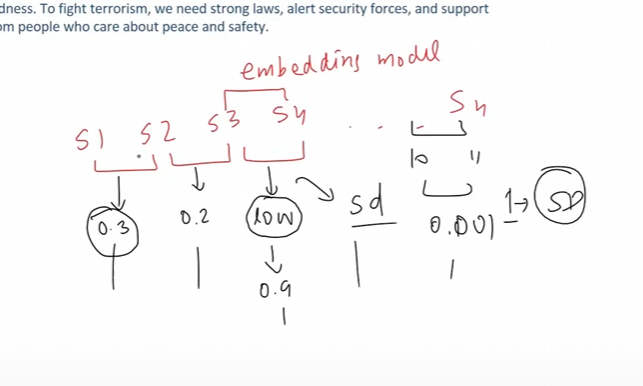 dness. To fight terrorism, we need strong laws, alert security forces, and support
om people who care about peace and safety.
embedding model
S1 S2 S3 S4 . . Sn
10 11
0.3 0.2 low sd 0.001 1→ SD
0.9